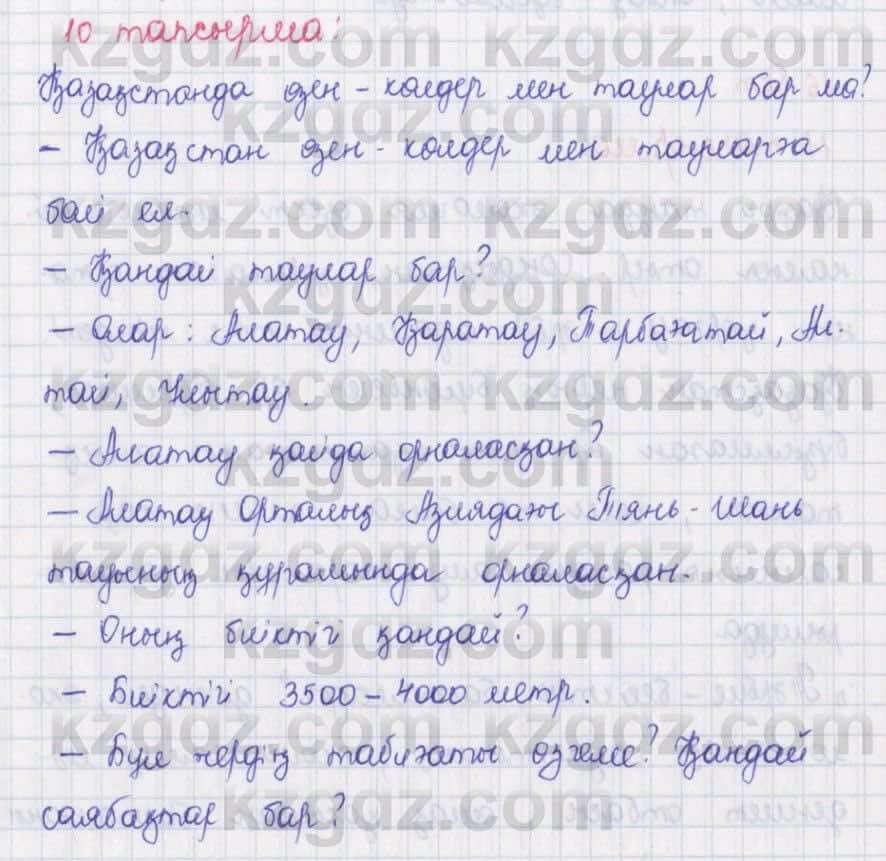 10 тапсырма:
Қазақстанда өзен - көлдер мен таулар бар ма?
- Қазақстан өзен - көлдер мен тауларға
бай ел.
- Қандай таулар бар?
- Олар : Алатау, Қаратау, Тарбағатай, Ал-
тай, Ұлытау.
- Алатау қайда орналасқан?
- Алатау Орталық Азиядағы Тянь - Шань
тауының құрамында орналасқан.
- Оның биіктігі қандай?
- Биіктігі 3500 - 4000 метр.
- Бұл жердің табиғаты өзгеше? Қандай
саябақтар бар?
kzgdz.com